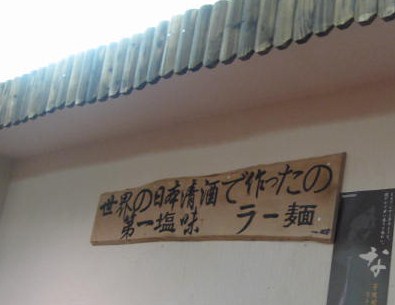 世界の日本清酒で作ったの
第一塩味 ラー麺
な